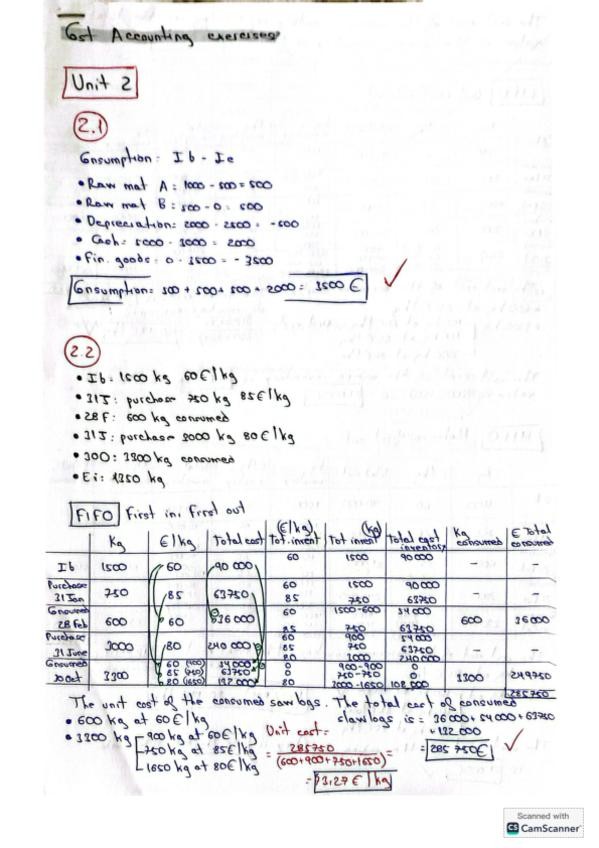 Cost Accounting exercises
Unit 2
2.1
Consumption: Ib - Ie
• Raw mat A: 1000 - 500 = 500
• Raw mat B: 500 - 0 = 500
• Depreciation: 2000 - 2500 = -500
• Cash: 5000 - 3000 = 2000
• Fin. goods: 0 - 3500 = -3500
Consumption: 500 + 500 + 500 + 2000 = 3500 €
2.2
• Ib = 1500 kg 60€/kg
• 31J: purchase 750 kg 85€/kg
• 28F: 600 kg consumed
• 31J: purchase 3000 kg 80€/kg
• 30O: 3300 kg consumed
• Ei: 1350 kg
FIFO First in: First out
Kg €/kg Total cost (€/kg) Tot. invent (kg) Tot invent Total cost inventory Kg consumed € Total consumed
Ib 1500 60 90 000 60 1500 90 000 - -
Purchase 31 Jan 750 85 63750 60 1500 90 000 - -
85 750 63750
Consumed 28 Feb 600 60 36 000 60 1500-600 54 000 600 36 000
85 750 63750
Purchase 31 June 3000 80 240 000 60 900 54 000 - -
85 750 63750
80 3000 240 000
Consumed 30 Oct 3300 60 (900) 54 000 0 900-900 0 3300 249750
85 (750) 63750 0 750-750 0
80 (1650) 132 000 80 3000-1650 108 000
285750
The unit cost of the consumed sawlogs.
• 600 kg at 60€/kg
• 3300 kg 900 kg at 60€/kg
750 kg at 85€/kg
1650 kg at 80€/kg
Unit cost:
= 285750 / (600+900+750+1650) =
= 73,27 €/kg
The total cost of consumed
slawlogs is = 36 000 + 54 000 + 63750
+ 132 000
= 285 750€
Scanned with
CS CamScanner